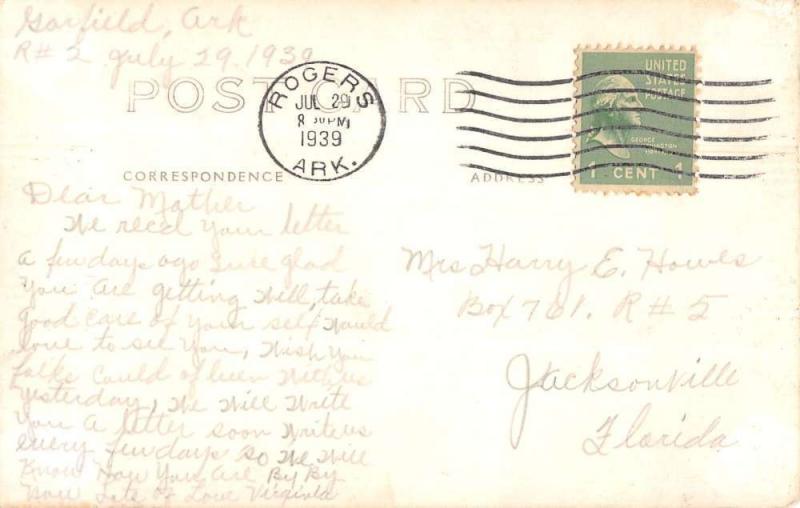 Garfield, Ark
R# 2 July 29. 1939
POST CARD
ROGERS
JUL 29
8 30 PM
1939
ARK.
UNITED
STATES
POSTAGE
GEORGE
WASHINGTON
1 CENT 1
CORRESPONDENCE
ADDRESS
Dear Mother
We recd your letter
a few days ago Sure glad
You are getting Well, take
Good care of your self Would
love to see you, Wish you
folks Could of been With us
Yesterday, We Will Write
You a letter soon Write us
every few days so We Will
Know How You are By By
Now Lots of Love Virginia
Mrs Harry E. Howes
Box 761. R# 5
Jacksonville
Florida